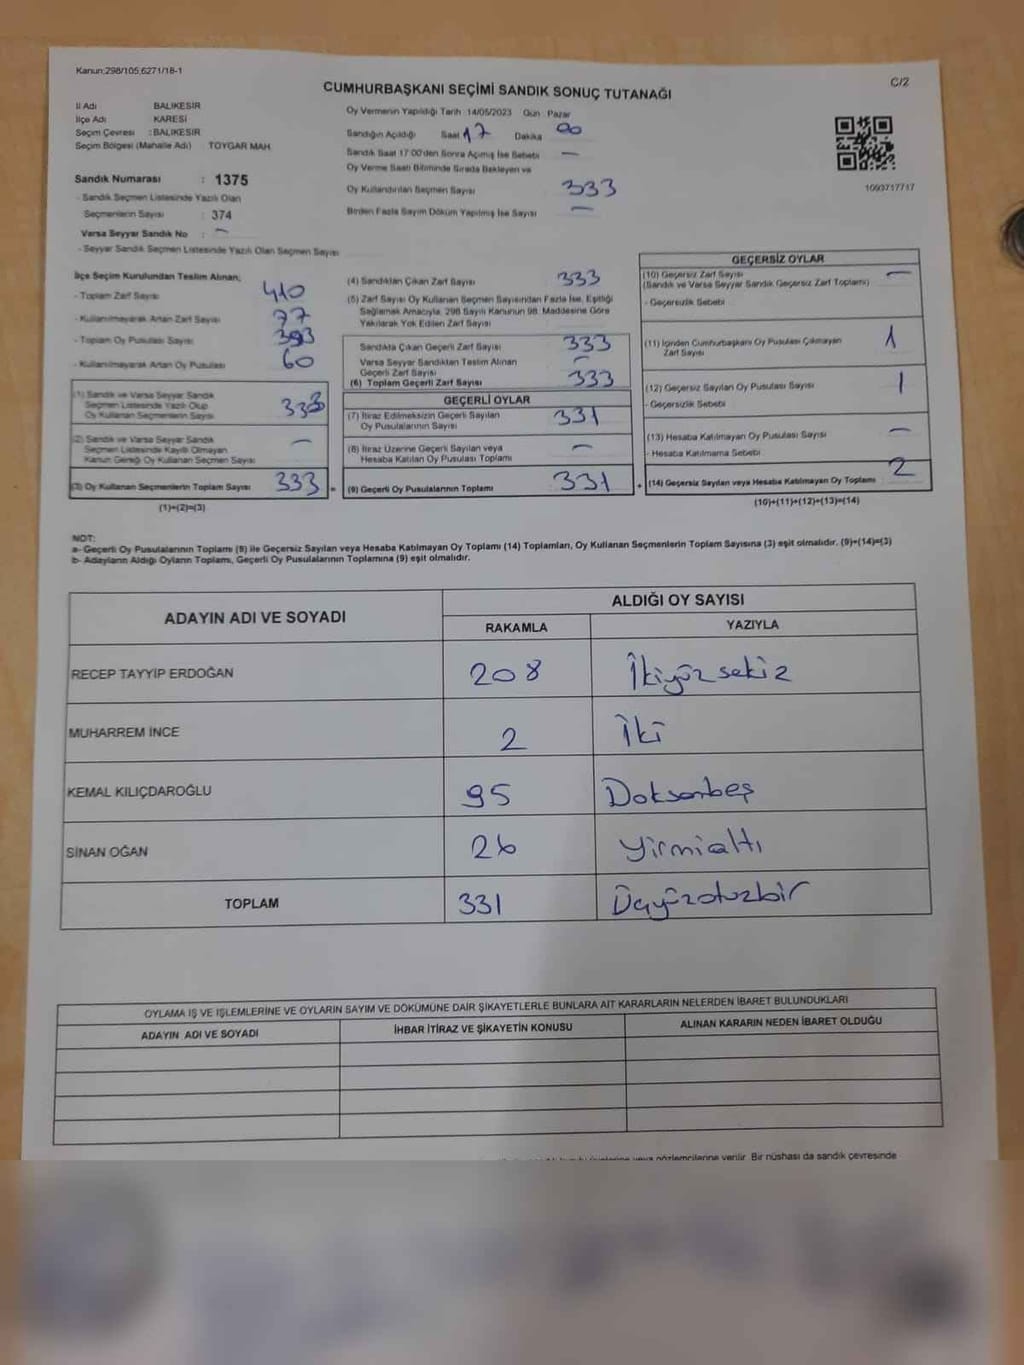 Kanun;298/105;6271/18-1
C/2
CUMHURBAŞKANI SEÇİMİ SANDIK SONUÇ TUTANAĞI
İl Adı BALIKESİR
İlçe Adı KARESİ
Seçim Çevresi : BALIKESİR
Seçim Bölgesi (Mahalle Adı) TOYGAR MAH.
Oy Vermenin Yapıldığı Tarih 14/05/2023 Gün Pazar
Sandığın Açıldığı Saat 17 Dakika 00
Sandık Saat 17:00'den Sonra Açmış İse Sebebi –
Oy Verme Saati Bitiminde Sırada Bekleyen ve
Oy Kullandırılan Seçmen Sayısı 333
Birden Fazla Sayım Döküm Yapılmış İse Sayısı –
1093717717
Sandık Numarası : 1375
- Sandık Seçmen Listesinde Yazılı Olan
Seçmenlerin Sayısı : 374
Varsa Seyyar Sandık No : –
- Seyyar Sandık Seçmen Listesinde Yazılı Olan Seçmen Sayısı
İlçe Seçim Kurulundan Teslim Alınan;
- Toplam Zarf Sayısı 410
- Kullanılmayarak Artan Zarf Sayısı 77
- Toplam Oy Pusulası Sayısı 393
- Kullanılmayarak Artan Oy Pusulası 60
(1) Sandık ve Varsa Seyyar Sandık
Seçmen Listesinde Yazılı Olup
Oy Kullanan Seçmenlerin Sayısı 333
(2) Sandık ve Varsa Seyyar Sandık
Seçmen Listesinde Kayıtlı Olmayan
Kanun Gereği Oy Kullanan Seçmen Sayısı –
(3) Oy Kullanan Seçmenlerin Toplam Sayısı 333
(1)+(2)=(3)
=
(4) Sandıktan Çıkan Zarf Sayısı 333
(5) Zarf Sayısı Oy Kullanan Seçmen Sayısından Fazla İse, Eşitliği
Sağlamak Amacıyla, 298 Sayılı Kanunun 98. Maddesine Göre
Yakılarak Yok Edilen Zarf Sayısı
Sandıkta Çıkan Geçerli Zarf Sayısı 333
Varsa Seyyar Sandıktan Teslim Alınan
Geçerli Zarf Sayısı –
(6) Toplam Geçerli Zarf Sayısı 333
GEÇERLİ OYLAR
(7) İtiraz Edilmeksizin Geçerli Sayılan
Oy Pusulalarının Sayısı 331
(8) İtiraz Üzerine Geçerli Sayılan veya
Hesaba Katılan Oy Pusulası Toplamı –
(9) Geçerli Oy Pusulalarının Toplamı 331
+
GEÇERSİZ OYLAR
(10) Geçersiz Zarf Sayısı –
(Sandık ve Varsa Seyyar Sandık Geçersiz Zarf Toplamı)
- Geçersizlik Sebebi
(11) İçinden Cumhurbaşkanı Oy Pusulası Çıkmayan
Zarf Sayısı 1
(12) Geçersiz Sayılan Oy Pusulası Sayısı 1
- Geçersizlik Sebebi
(13) Hesaba Katılmayan Oy Pusulası Sayısı –
- Hesaba Katılmama Sebebi
(14) Geçersiz Sayılan veya Hesaba Katılmayan Oy Toplamı 2
(10)+(11)+(12)+(13)=(14)
NOT:
a- Geçerli Oy Pusulalarının Toplamı (9) ile Geçersiz Sayılan veya Hesaba Katılmayan Oy Toplamı (14) Toplamları, Oy Kullanan Seçmenlerin Toplam Sayısına (3) eşit olmalıdır. (9)+(14)=(3)
b- Adayların Aldığı Oyların Toplamı, Geçerli Oy Pusulalarının Toplamına (9) eşit olmalıdır.
ADAYIN ADI VE SOYADI ALDIĞI OY SAYISI
RAKAMLA YAZIYLA
RECEP TAYYİP ERDOĞAN 208 İkiyüz sekiz
MUHARREM İNCE 2 İki
KEMAL KILIÇDAROĞLU 95 Doksanbeş
SİNAN OĞAN 26 Yirmialtı
TOPLAM 331 Üçyüzotuzbir
OYLAMA İŞ VE İŞLEMLERİNE VE OYLARIN SAYIM VE DÖKÜMÜNE DAİR ŞİKAYETLERLE BUNLARA AİT KARARLARIN NELERDEN İBARET BULUNDUKLARI
ADAYIN ADI VE SOYADI İHBAR İTİRAZ VE ŞİKAYETİN KONUSU ALINAN KARARIN NEDEN İBARET OLDUĞU
veya gözlemcilerine verilir. Bir nüshası da sandık çevresinde